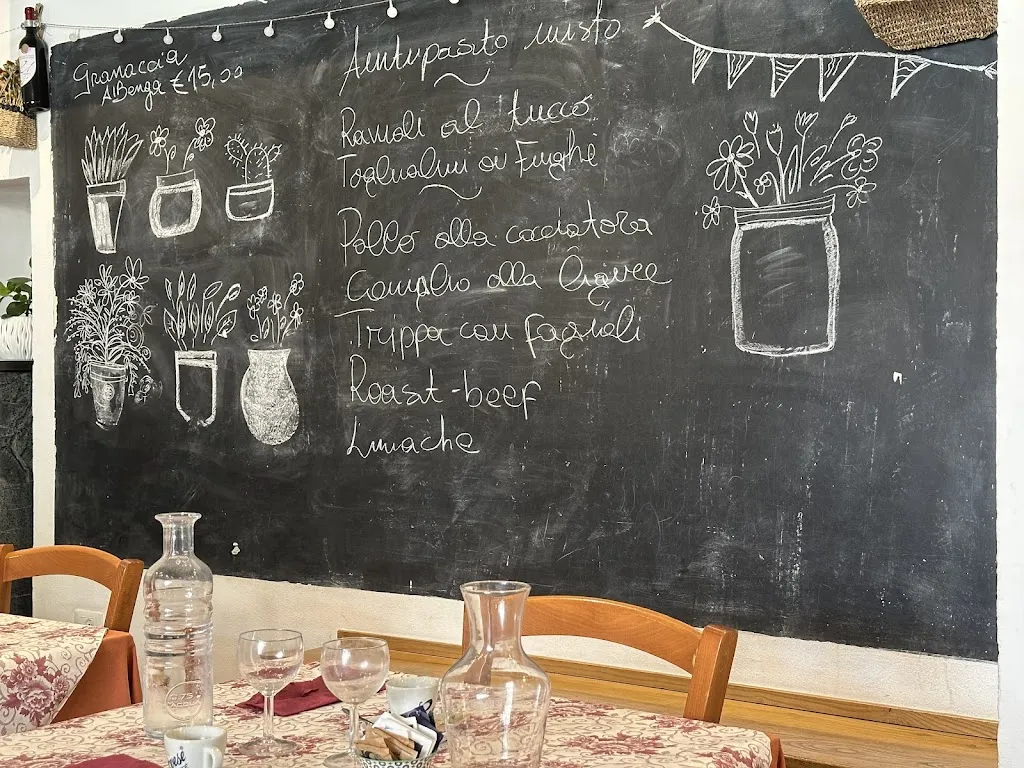 Granaccia
Albenga €15,00
Antipasto misto
Ravioli al tuccò
Taglialini ai Funghi
Pollo alla cacciatora
Coniglio alla ligure
Trippa con fagioli
Roast-beef
Lumache